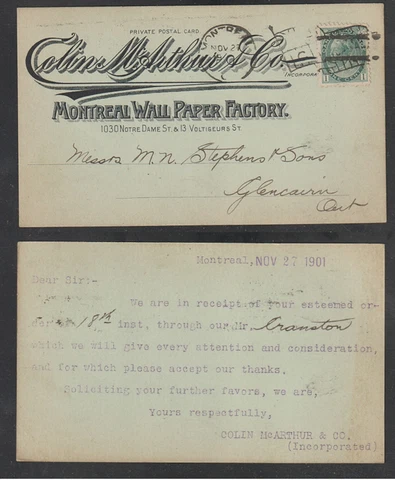 PRIVATE POSTAL CARD
Colin McArthur & Co.
INCORPOR
MONTREAL
NOV 27
MONTREAL WALL PAPER FACTORY.
1030 NOTRE DAME ST. & 13 VOLTIGEURS ST.
Messrs M.N. Stephens & Sons
Glencairn
Ont
Montreal, NOV 27 1901
Dear Sir:-
We are in receipt of your esteemed or-
der of 18th inst, through our Mr. Cranston
which we will give every attention and consideration,
and for which please accept our thanks.
Soliciting your further favors, we are,
Yours respectfully,
COLIN McARTHUR & CO.
(Incorporated)